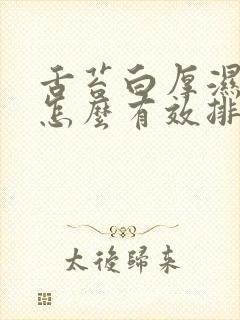 舌苔白厚濕
怎麼有效排
太後歸來